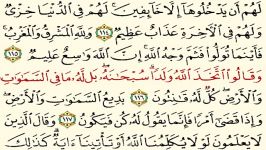 لَهُمْ أَن يَدْخُلُوهَآ إِلَّا خَآئِفِينَ ۚ لَهُمْ فِى ٱلدُّنْيَا خِزْىٌ
وَلَهُمْ فِى ٱلْـَٔاخِرَةِ عَذَابٌ عَظِيمٌ ١١٤ وَلِلَّهِ ٱلْمَشْرِقُ وَٱلْمَغْرِبُ ۚ
فَأَيْنَمَا تُوَلُّوا۟ فَثَمَّ وَجْهُ ٱللَّهِ ۚ إِنَّ ٱللَّهَ وَٰسِعٌ عَلِيمٌ ١١٥
وَقَالُوا۟ ٱتَّخَذَ ٱللَّهُ وَلَدًا ۗ سُبْحَـٰنَهُۥ ۖ بَل لَّهُۥ مَا فِى ٱلسَّمَـٰوَٰتِ
وَٱلْأَرْضِ ۖ كُلٌّ لَّهُۥ قَـٰنِتُونَ ١١٦ بَدِيعُ ٱلسَّمَـٰوَٰتِ وَٱلْأَرْضِ ۖ
وَإِذَا قَضَىٰٓ أَمْرًا فَإِنَّمَا يَقُولُ لَهُۥ كُن فَيَكُونُ ١١٧ وَقَالَ ٱلَّذِينَ
لَا يَعْلَمُونَ لَوْلَا يُكَلِّمُنَا ٱللَّهُ أَوْ تَأْتِينَآ ءَايَةٌ ۗ كَذَٰلِكَ